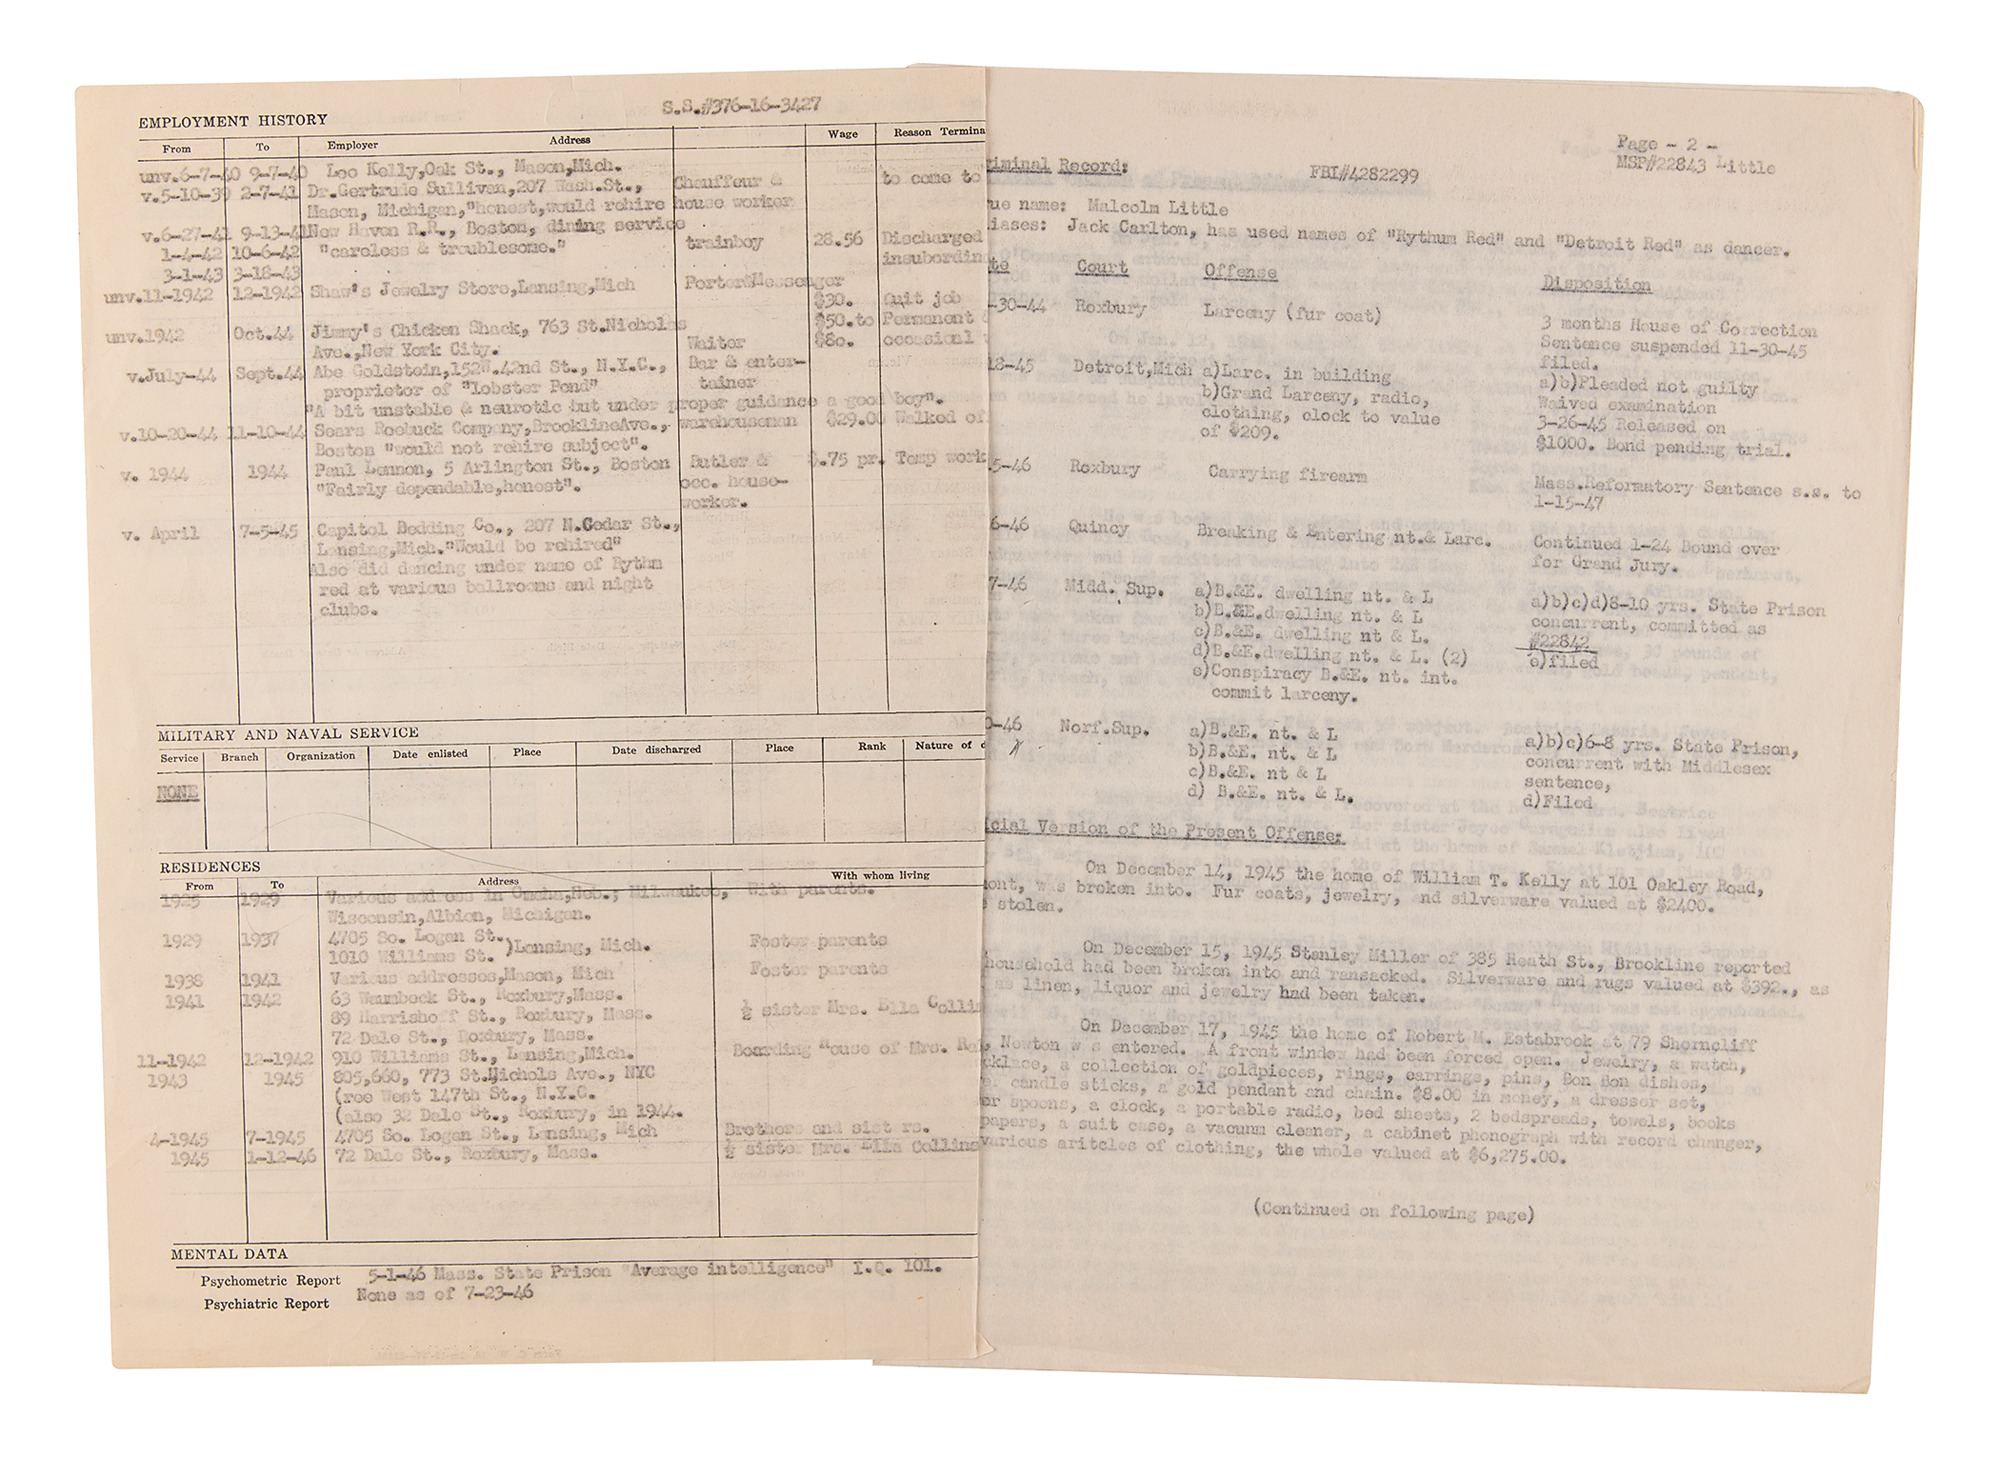 S.S.#376-16-3427
EMPLOYMENT HISTORY
From To Employer Address Wage Reason Termina
unv.6-7-40 9-7-40 Leo Kelly,Oak St., Mason,Mich.
v.5-10-39 2-7-41 Dr.Gertrude Sulliven,207 Wash.St., Chauffeur & to come to
Mason, Michigan,"honest,would rehire house worker
v.6-27-41 9-13-41 New Haven R.R., Boston, dining service
1-4-42 10-6-42 "careless & troublesome." trainboy 28.56 Discharged
3-1-43 3-18-43 insubordin
unv.11-1942 12-1942 Shaw's Jewelry Store,Lansing,Mich Porter&Messenger
$30. Quit job
unv.1942 Oct.44 Jimmy's Chicken Shack, 763 St.Nicholas $50.to Permanent
Ave.,New York City. Waiter $80. occasional
v.July-44 Sept.44 Abe Goldstein,152W.42nd St., N.Y.C., Bar & enter-
proprietor of "Lobster Pond" tainer
"A bit unstable & neurotic but under proper guidance a good boy".
v.10-20-44 11-10-44 Sears Roebuck Company,BrooklineAve., warehouseman $29.00 Walked of
Boston "would not rehire subject".
v. 1944 1944 Paul Lennon, 5 Arlington St., Boston Butler & $.75 pr. Temp work
"Fairly dependable,honest". occ. house-
worker.
v. April 7-5-45 Capitol Bedding Co., 207 N.Cedar St.,
Lansing,Mich."Would be rehired"
Also did dancing under name of Rythm
red at various ballrooms and night
clubs.
MILITARY AND NAVAL SERVICE
Service Branch Organization Date enlisted Place Date discharged Place Rank Nature of d
NONE
RESIDENCES
From To Address With whom living
1925 1929 Various address in Omaha,Neb.; Milwaukee, With parents.
Wisconsin,Albion, Michigan.
1929 1937 4705 So. Logan St.
1010 Williams St. )Lansing, Mich. Foster parents
1938 1941 Various addresses,Mason, Mich Foster parents
1941 1942 63 Waumbeck St., Roxbury,Mass.
89 Harrishoff St., Roxbury, Mass. ½ sister Mrs. Ella Collin
72 Dale St., Roxbury, Mass.
11-1942 12-1942 910 Williams St., Lansing,Mich. Boarding House of Mrs.
1943 1945 805,660, 773 St.Nichols Ave., NYC
(ree West 147th St., N.Y.C.
(also 32 Dale St., Roxbury, in 1944.
4-1945 7-1945 4705 So. Logan St., Lansing, Mich Brothers and sist rs.
1945 1-12-46 72 Dale St., Roxbury, Mass. ½ sister Mrs. Ella Collins
MENTAL DATA
Psychometric Report 5-1-46 Mass. State Prison "Average intelligence" I.Q. 101.
Psychiatric Report None as of 7-23-46
Page - 2 -
riminal Record: FBI#4282299 MSP#22843 Little
ue name: Malcolm Little
iases: Jack Carlton, has used names of "Rythum Red" and "Detroit Red" as dancer.
te Court Offense Disposition
-30-44 Roxbury Larceny (fur coat) 3 months House of Correction
Sentence suspended 11-30-45
filed.
18-45 Detroit,Mich a)Larc. in building a)b)Pleaded not guilty
b)Grand Larceny, radio, Waived examination
clothing, clock to value 3-26-45 Released on
of $209. $1000. Bond pending trial.
5-46 Roxbury Carrying firearm Mass.Reformatory Sentence s.s. to
1-15-47
6-46 Quincy Breaking & Entering nt.& Larc. Continued 1-24 Bound over
for Grand Jury.
7-46 Midd. Sup. a)B.&E. dwelling nt. & L a)b)c)d)8-10 yrs. State Prison
b)B.&E.dwelling nt. & L concurrent, committed as
c)B.&E. dwelling nt & L. #22842
d)B.&E.dwelling nt. & L. (2) e)filed
e)Conspiracy B.&E. nt. int.
commit larceny.
0-46 Norf.Sup. a)B.&E. nt. & L a)b)c)6-8 yrs. State Prison,
b)B.&E. nt. & L concurrent with Middlesex
c)B.&E. nt & L sentence,
d) B.&E. nt. & L. d)Filed
icial Version of the Present Offense:
On December 14, 1945 the home of William T. Kelly at 101 Oakley Road,
mont, was broken into. Fur coats, jewelry, and silverware valued at $2400.
e stolen.
On December 15, 1945 Stanley Miller of 385 Heath St., Brookline reported
household had been broken into and ransacked. Silverware and rugs valued at $392., as
as linen, liquor and jewelry had been taken.
On December 17, 1945 the home of Robert M. Estabrook at 79 Shorncliff
, Newton w s entered. A front window had been forced open. Jewelry, a watch,
cklace, a collection of goldpieces, rings, earrings, pins, Bon Bon dishes,
candle sticks, a gold pendant and chain. $8.00 in money, a dresser set,
er spoons, a clock, a portable radio, bed sheets, 2 bedspreads, towels, books
papers, a suit case, a vacuum cleaner, a cabinet phonograph with record changer,
various aritcles of clothing, the whole valued at $6,275.00.
(Continued on following page)